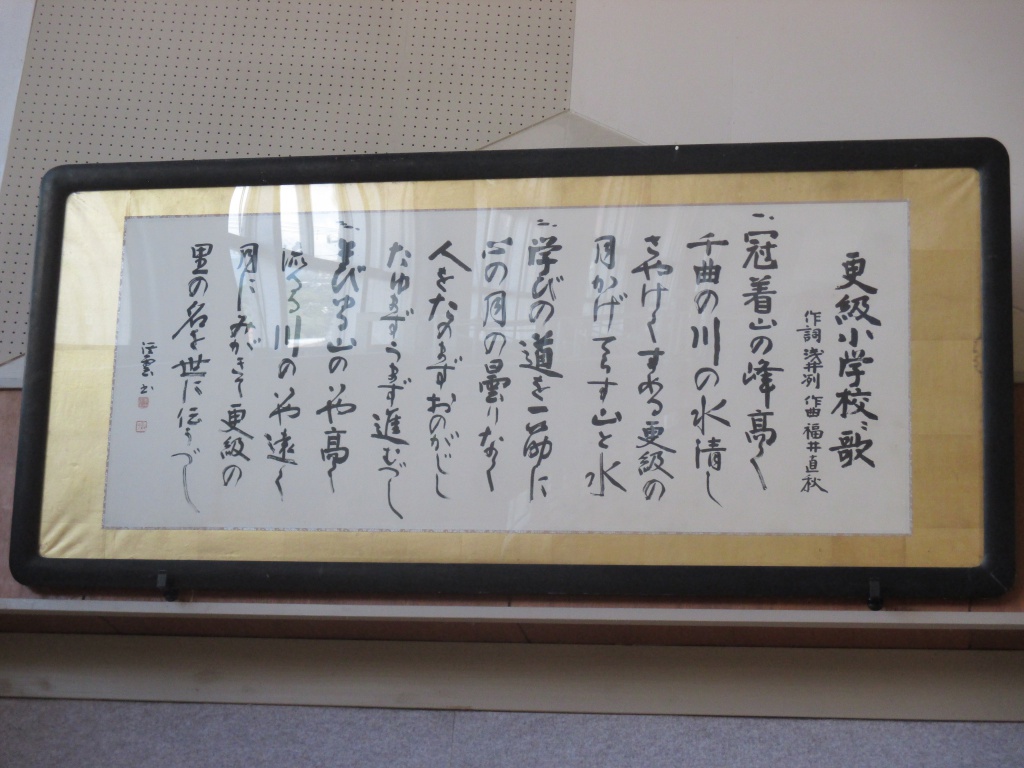 更級小学校々歌
作詞 浅井冽 作曲 福井直秋
一、冠着山の峰高く
千曲の川の水清し
さやけくすめる更級の
月かげてらす山と水
二、学びの道を一筋に
心の月の曇りなく
人をたのまずおのがじし
たゆまずうまず進むべし
三、そびゆる山のいや高く
流るる川のいや遠く
月にみがきて更級の
里の名を世に伝うべし